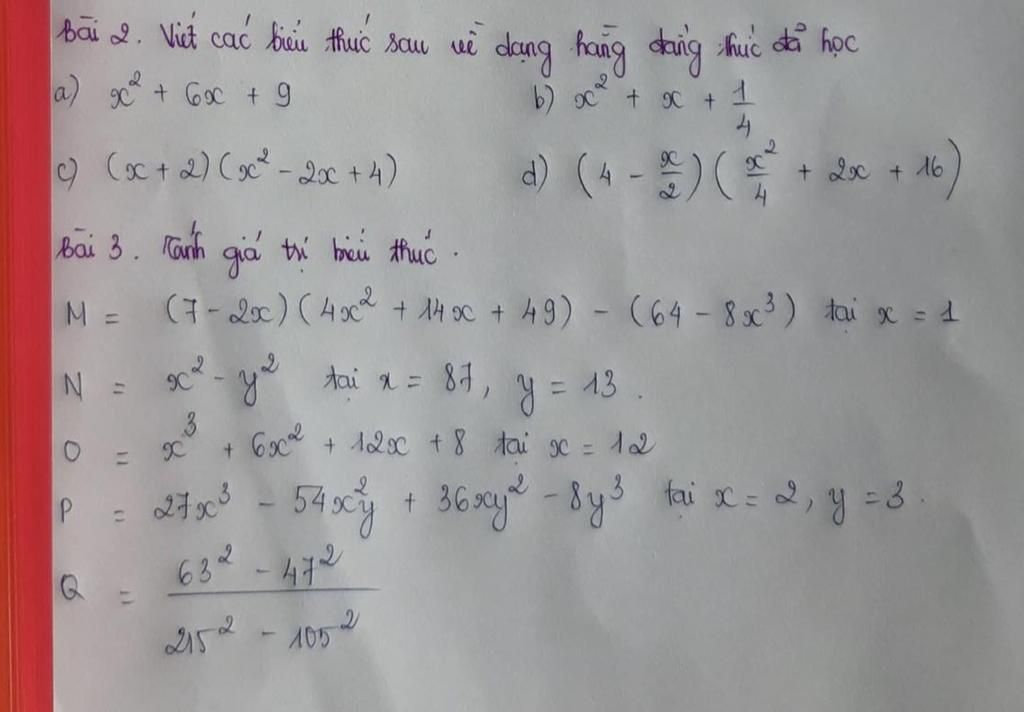 Bài 2. Viết các biểu thức sau về dạng hằng đẳng thức đã học
a) x² + 6x + 9 b) x² + x + 1/4
c) (x + 2)(x² - 2x + 4) d) (4 - x/2)(x²/4 + 2x + 16)
Bài 3. Tính giá trị biểu thức.
M = (7 - 2x)(4x² + 14x + 49) - (64 - 8x³) tại x = 1
N = x² - y² tại x = 87, y = 13.
O = x³ + 6x² + 12x + 8 tại x = 12
P = 27x³ - 54x²y + 36xy² - 8y³ tại x = 2, y = 3.
Q = (63² - 47²)/(215² - 105²)